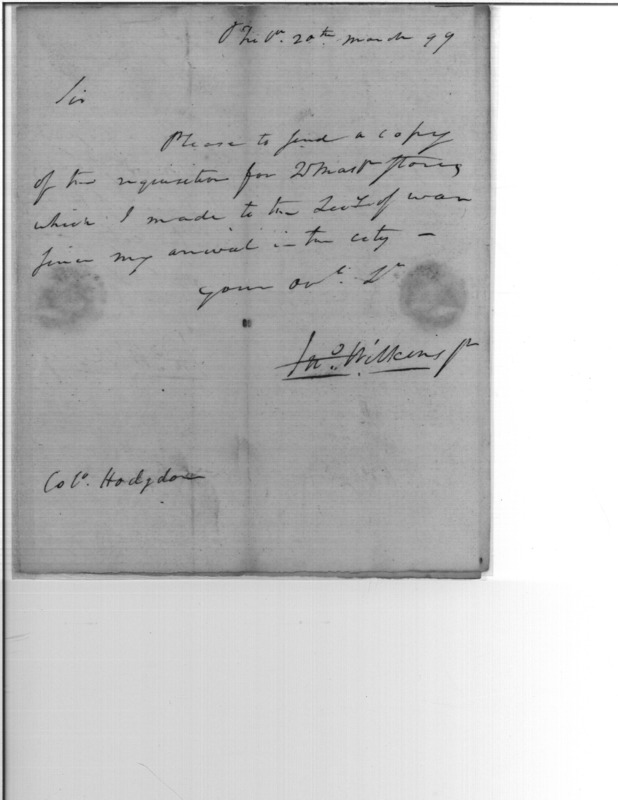 Phila. 20th march 99
Sir
Please to send a copy
of the requisition for Qr Mastr stores
which I made to the Secy of war
since my arrival in the city –
your Obt. Sr
Jno. Wilkins Jr
Colo. Hodgdon